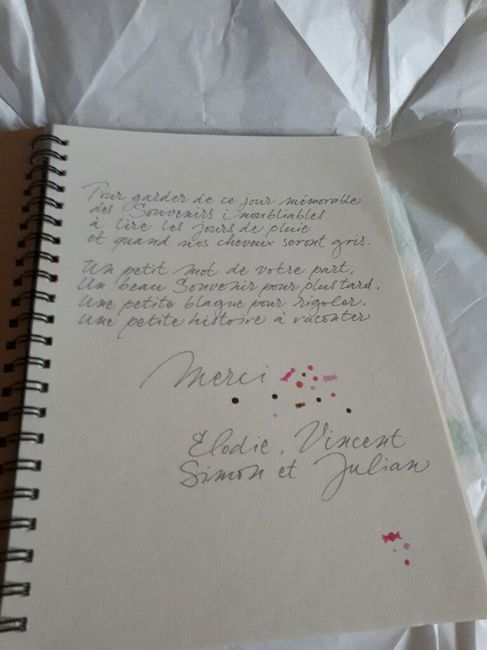 Pour garder de ce jour mémorable
des Souvenirs inoubliables
à lire les jours de pluie
et quand nos cheveux seront gris.
Un petit mot de votre part,
Un beau Souvenir pour plus tard.
Une petite blague pour rigoler.
Une petite histoire à raconter
Merci
Elodie, Vincent
Simon et Julian